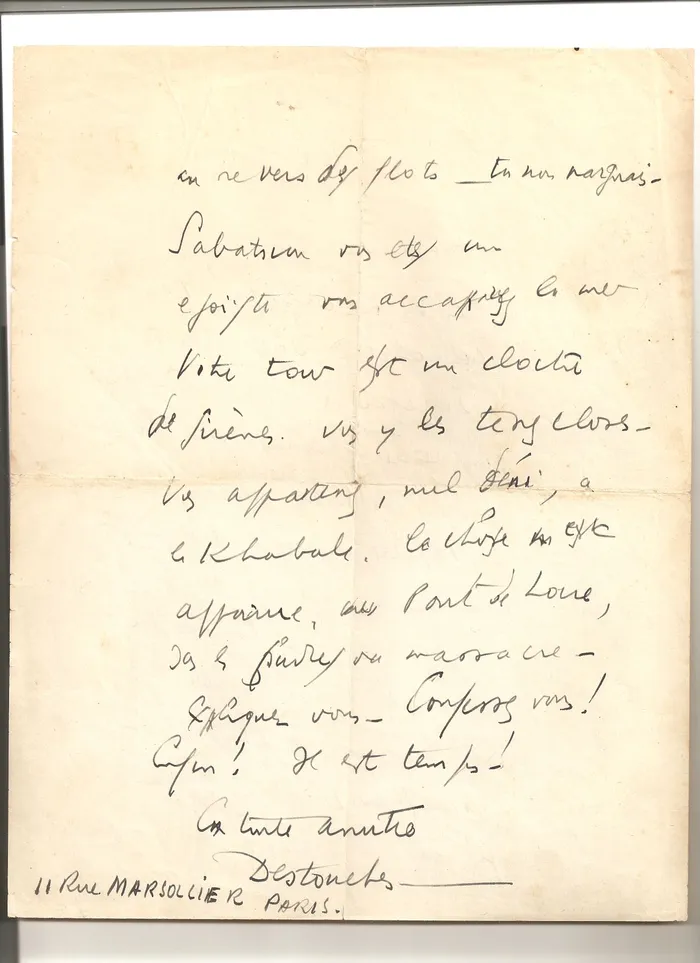 au revers des flots — tu nous narguais —
vous êtes un
vous accaparez la mer
Votre tour est un cloche
de sirènes. vous y les tenez closes —
Vous appartenez, nul déni, a
la Khabale. la chose m est
Pont de Loire,
massacre —
Expliquez vous — Confessez vous !
Enfin ! Il est temps !
En toute amitié
Destouches
11 Rue MARSOLLIER PARIS.